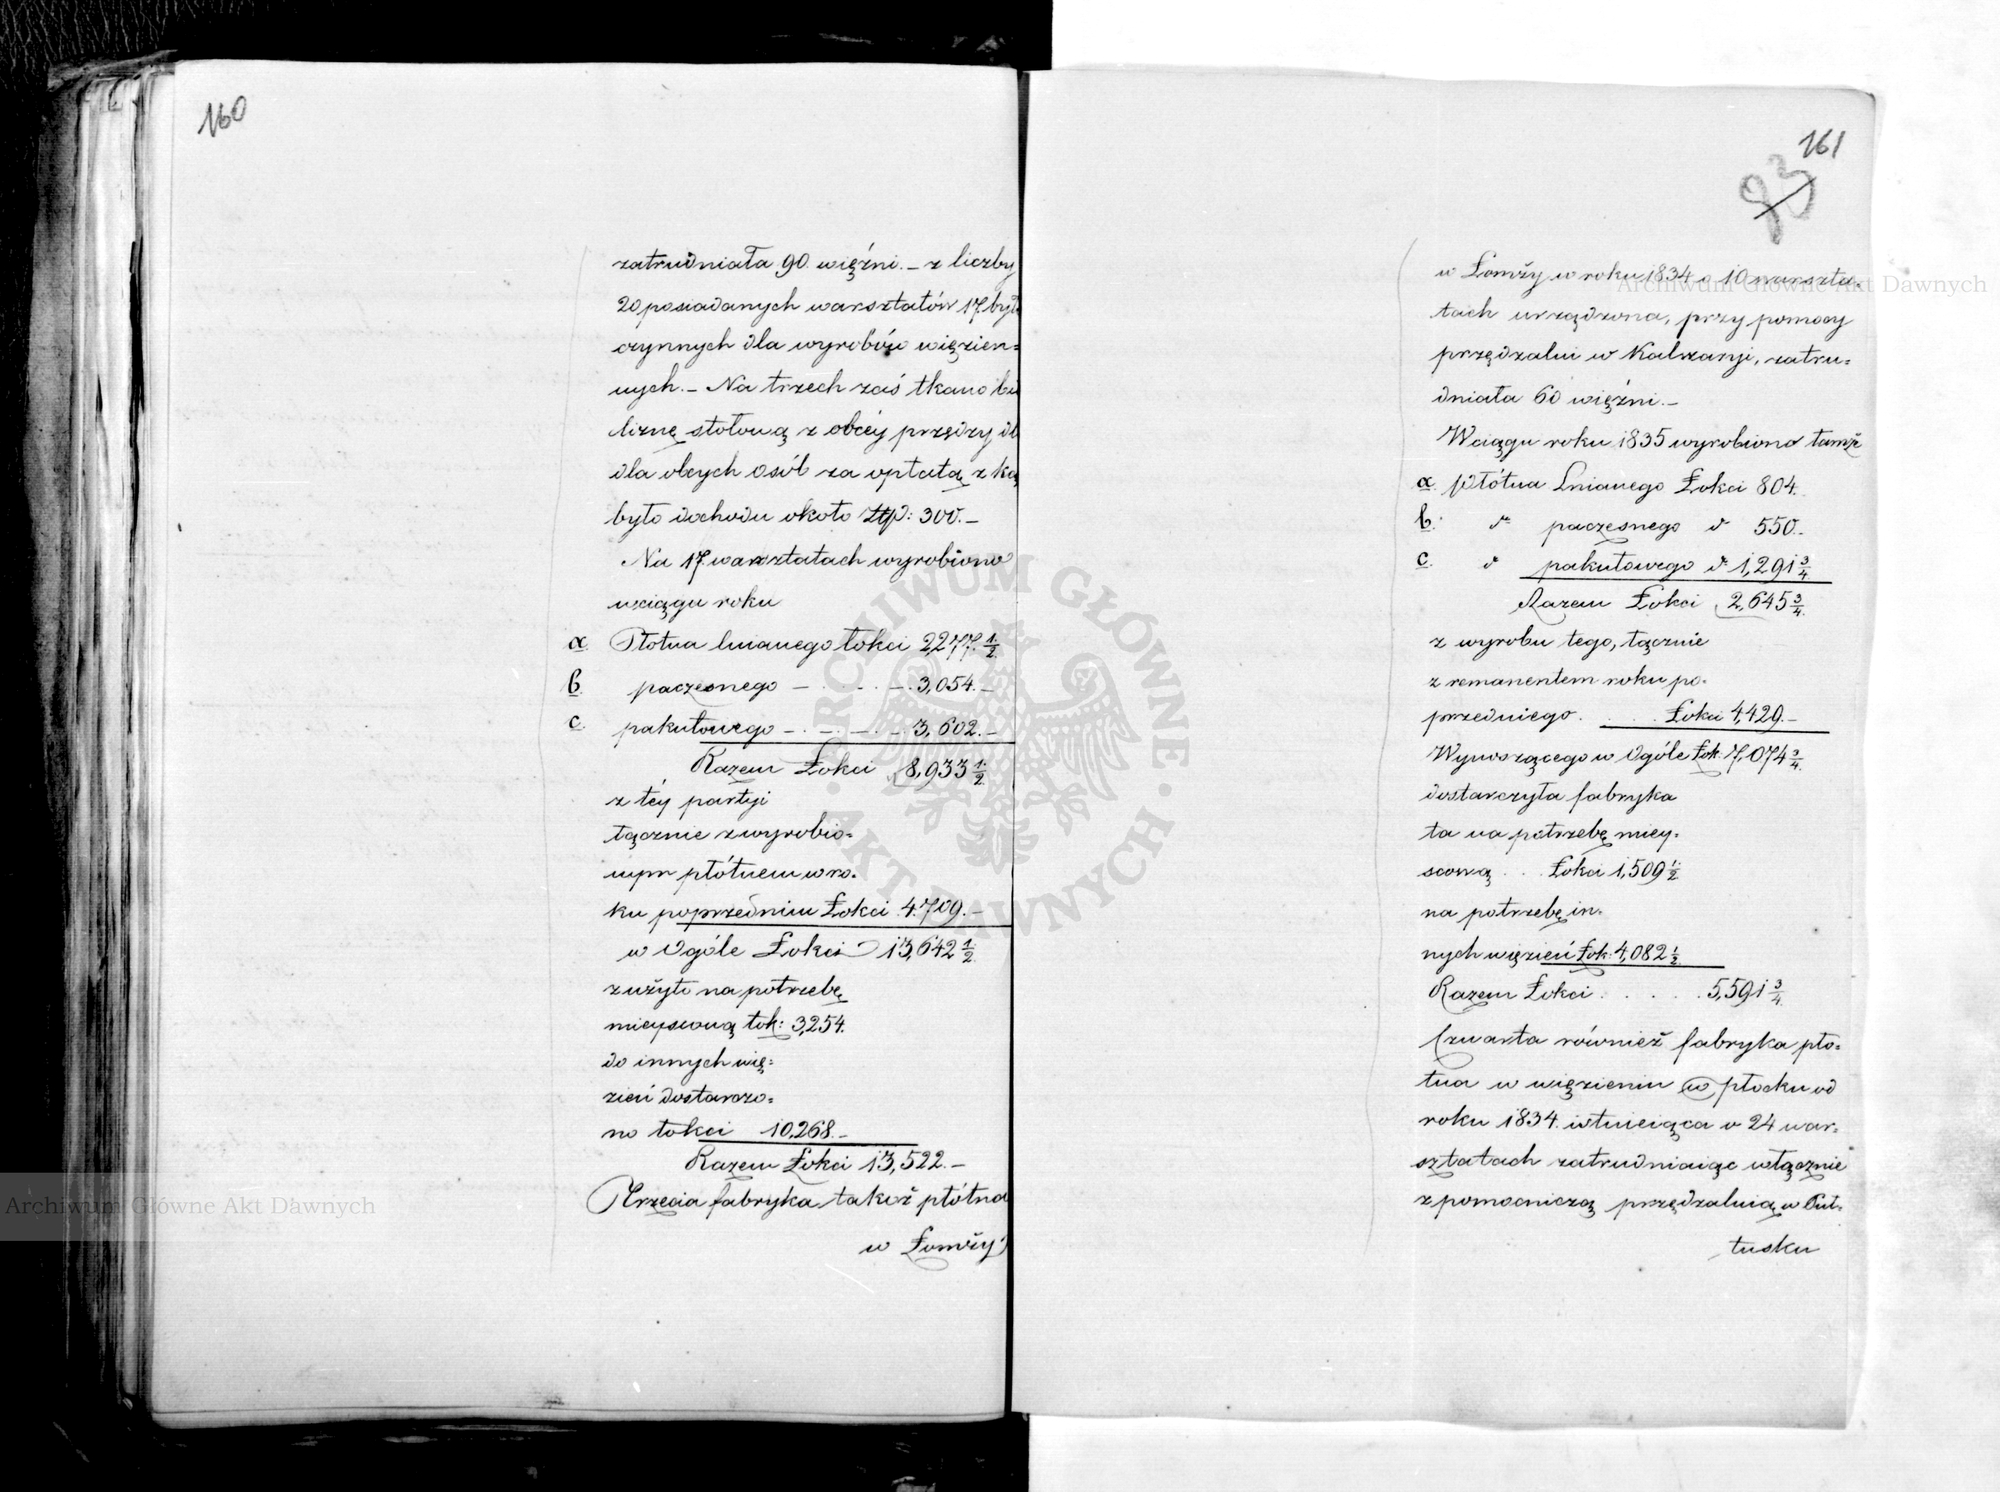 160
zatrudniała 90. więźni. – z liczby
20 posiadanych warsztatów 17. był
czynnych dla wyrobów więzien=
nych. – Na trzech zaś tkano bie
liznę stołową z obcéy przędzy
dla obcych osób za opłatą z
było dochodu około Złp: 300. –
Na 17. warsztatach wyrobiono
wciągu roku
a. Płotna lnianego łokci 2,277. 1/2.
b. paczesnego – . – . – 3,054. –
c. pakułowego – . – . – . – 3,602. –
Razem Łokci 8,933 1/2.
z téy partyi
łącznie z wyrobio=
nym płótnem w ro=
ku poprzednim Łokci 4,709. –
w Ogóle Łokci 13,642 1/2
zużyto na potrzebę
mieyscową łok: 3,254.
do innych wię=
zień dostarczo=
no łokci 10,268. –
Razem Łokci 13,522. –
Trzecia fabryka także płótna
w Łomży
161
93
w Łomży w roku 1834 o 10 warszta=
tach urządzona, przy pomocy
przędzalni w Kalwaryi, zatru=
dniała 60 więźni. –
Wciągu roku 1835 wyrobiono tamże
a. płótna Lnianego Łokci 804.
b. do paczesnego do 550. –
c. do pakułowego do 1,291 3/4
Razem Łokci 2,645 3/4.
z wyrobu tego, łącznie
z remanentem roku po=
przedniego . . . . Łokci 4,429. –
Wynoszącego w Ogóle Łok. 7,074 3/4.
dostarczyła fabryka
ta na potrzebę miey=
scową . . . Łokci 1,509 1/2
na potrzebę in=
nych więzień Łok: 4,082 1/2
Razem Łokci . . . . . 5,591 3/4.
Czwarta również fabryka pło=
tna w więzieniu w płocku od
roku 1834. istnieiąca o 24 war=
sztatach zatrudniaiąc włącznie
z pomocniczą przędzalnią w Puł=
tusku
Archiwum Główne Akt Dawnych
Archiwum Główne Akt Dawnych
ARCHIWUM GŁÓWNE · AKT DAWNYCH ·